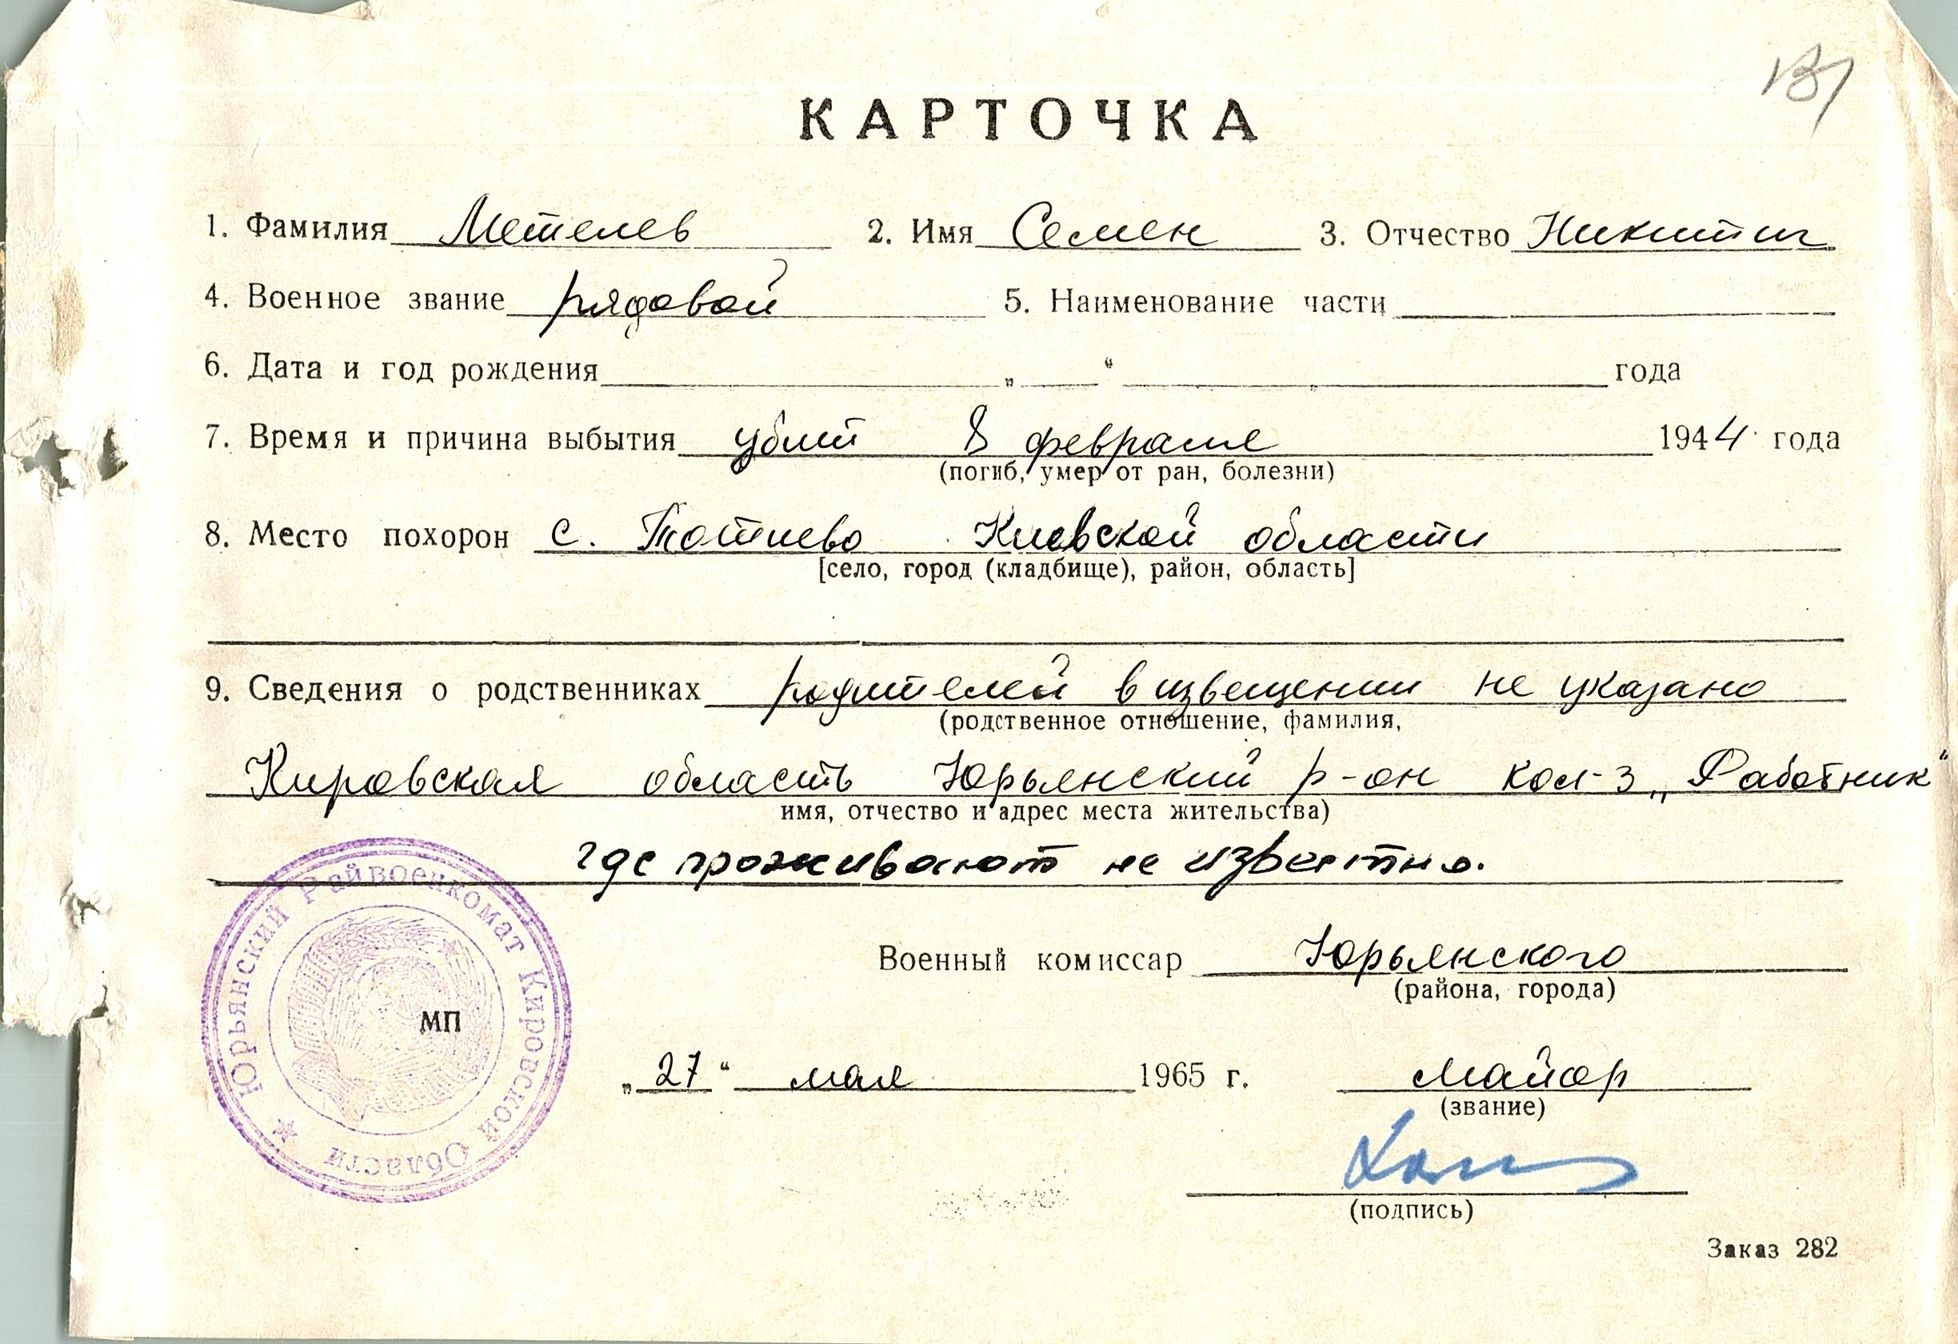 131
КАРТОЧКА
1. Фамилия Метелев 2. Имя Семен 3. Отчество Никитич
4. Военное звание рядовой 5. Наименование части
6. Дата и год рождения „ “ года
7. Время и причина выбытия убит 8 февраля 1944 года
(погиб, умер от ран, болезни)
8. Место похорон с. Тотиево Киевской области
[село, город (кладбище), район, область]
9. Сведения о родственниках родителей в извещении не указано
(родственное отношение, фамилия,
Кировская область Юрьянский р-он кол-з „Работник“
имя, отчество и адрес места жительства)
где проживают не известно.
Юрьянский Райвоенкомат Кировской Области
Военный комиссар Юрьянского
(района, города)
МП
„27“ мая 1965 г. майор
(звание)
(подпись)
Заказ 282